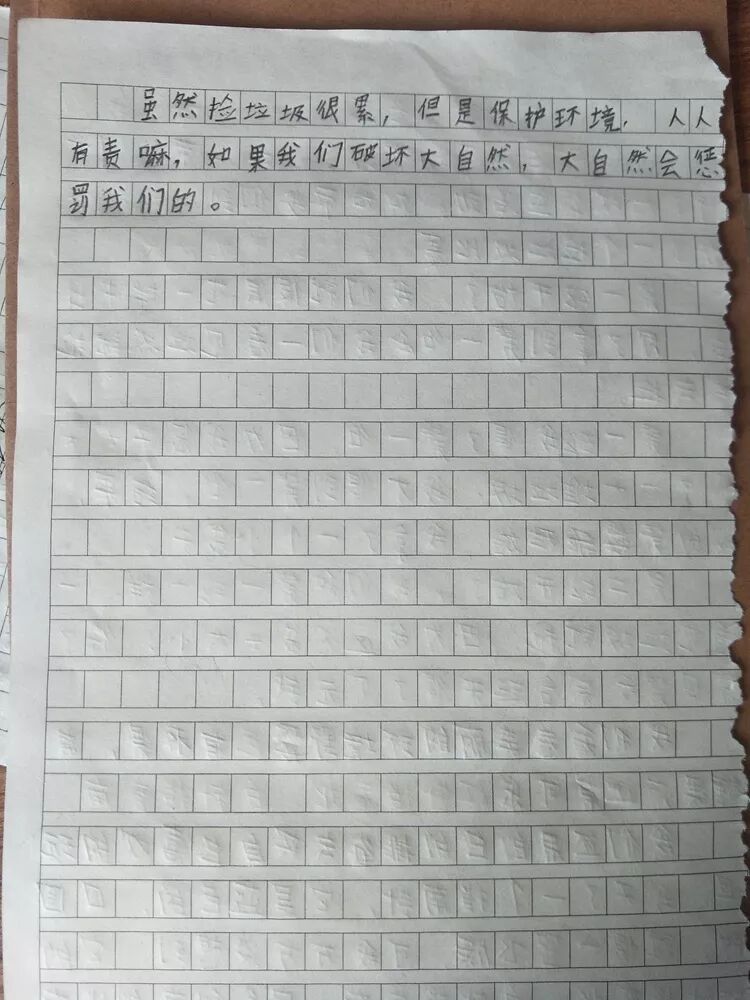 虽然捡垃圾很累，但是保护环境，人人
有责嘛，如果我们破坏大自然，大自然会惩
罚我们的。